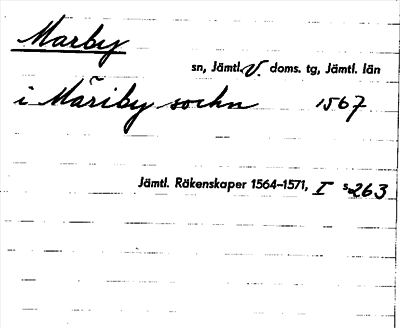 Marby
sn, Jämtl. V. doms. tg, Jämtl. län
i Måriby sochn 1567
Jämtl. Räkenskaper 1564–1571, I s. 263